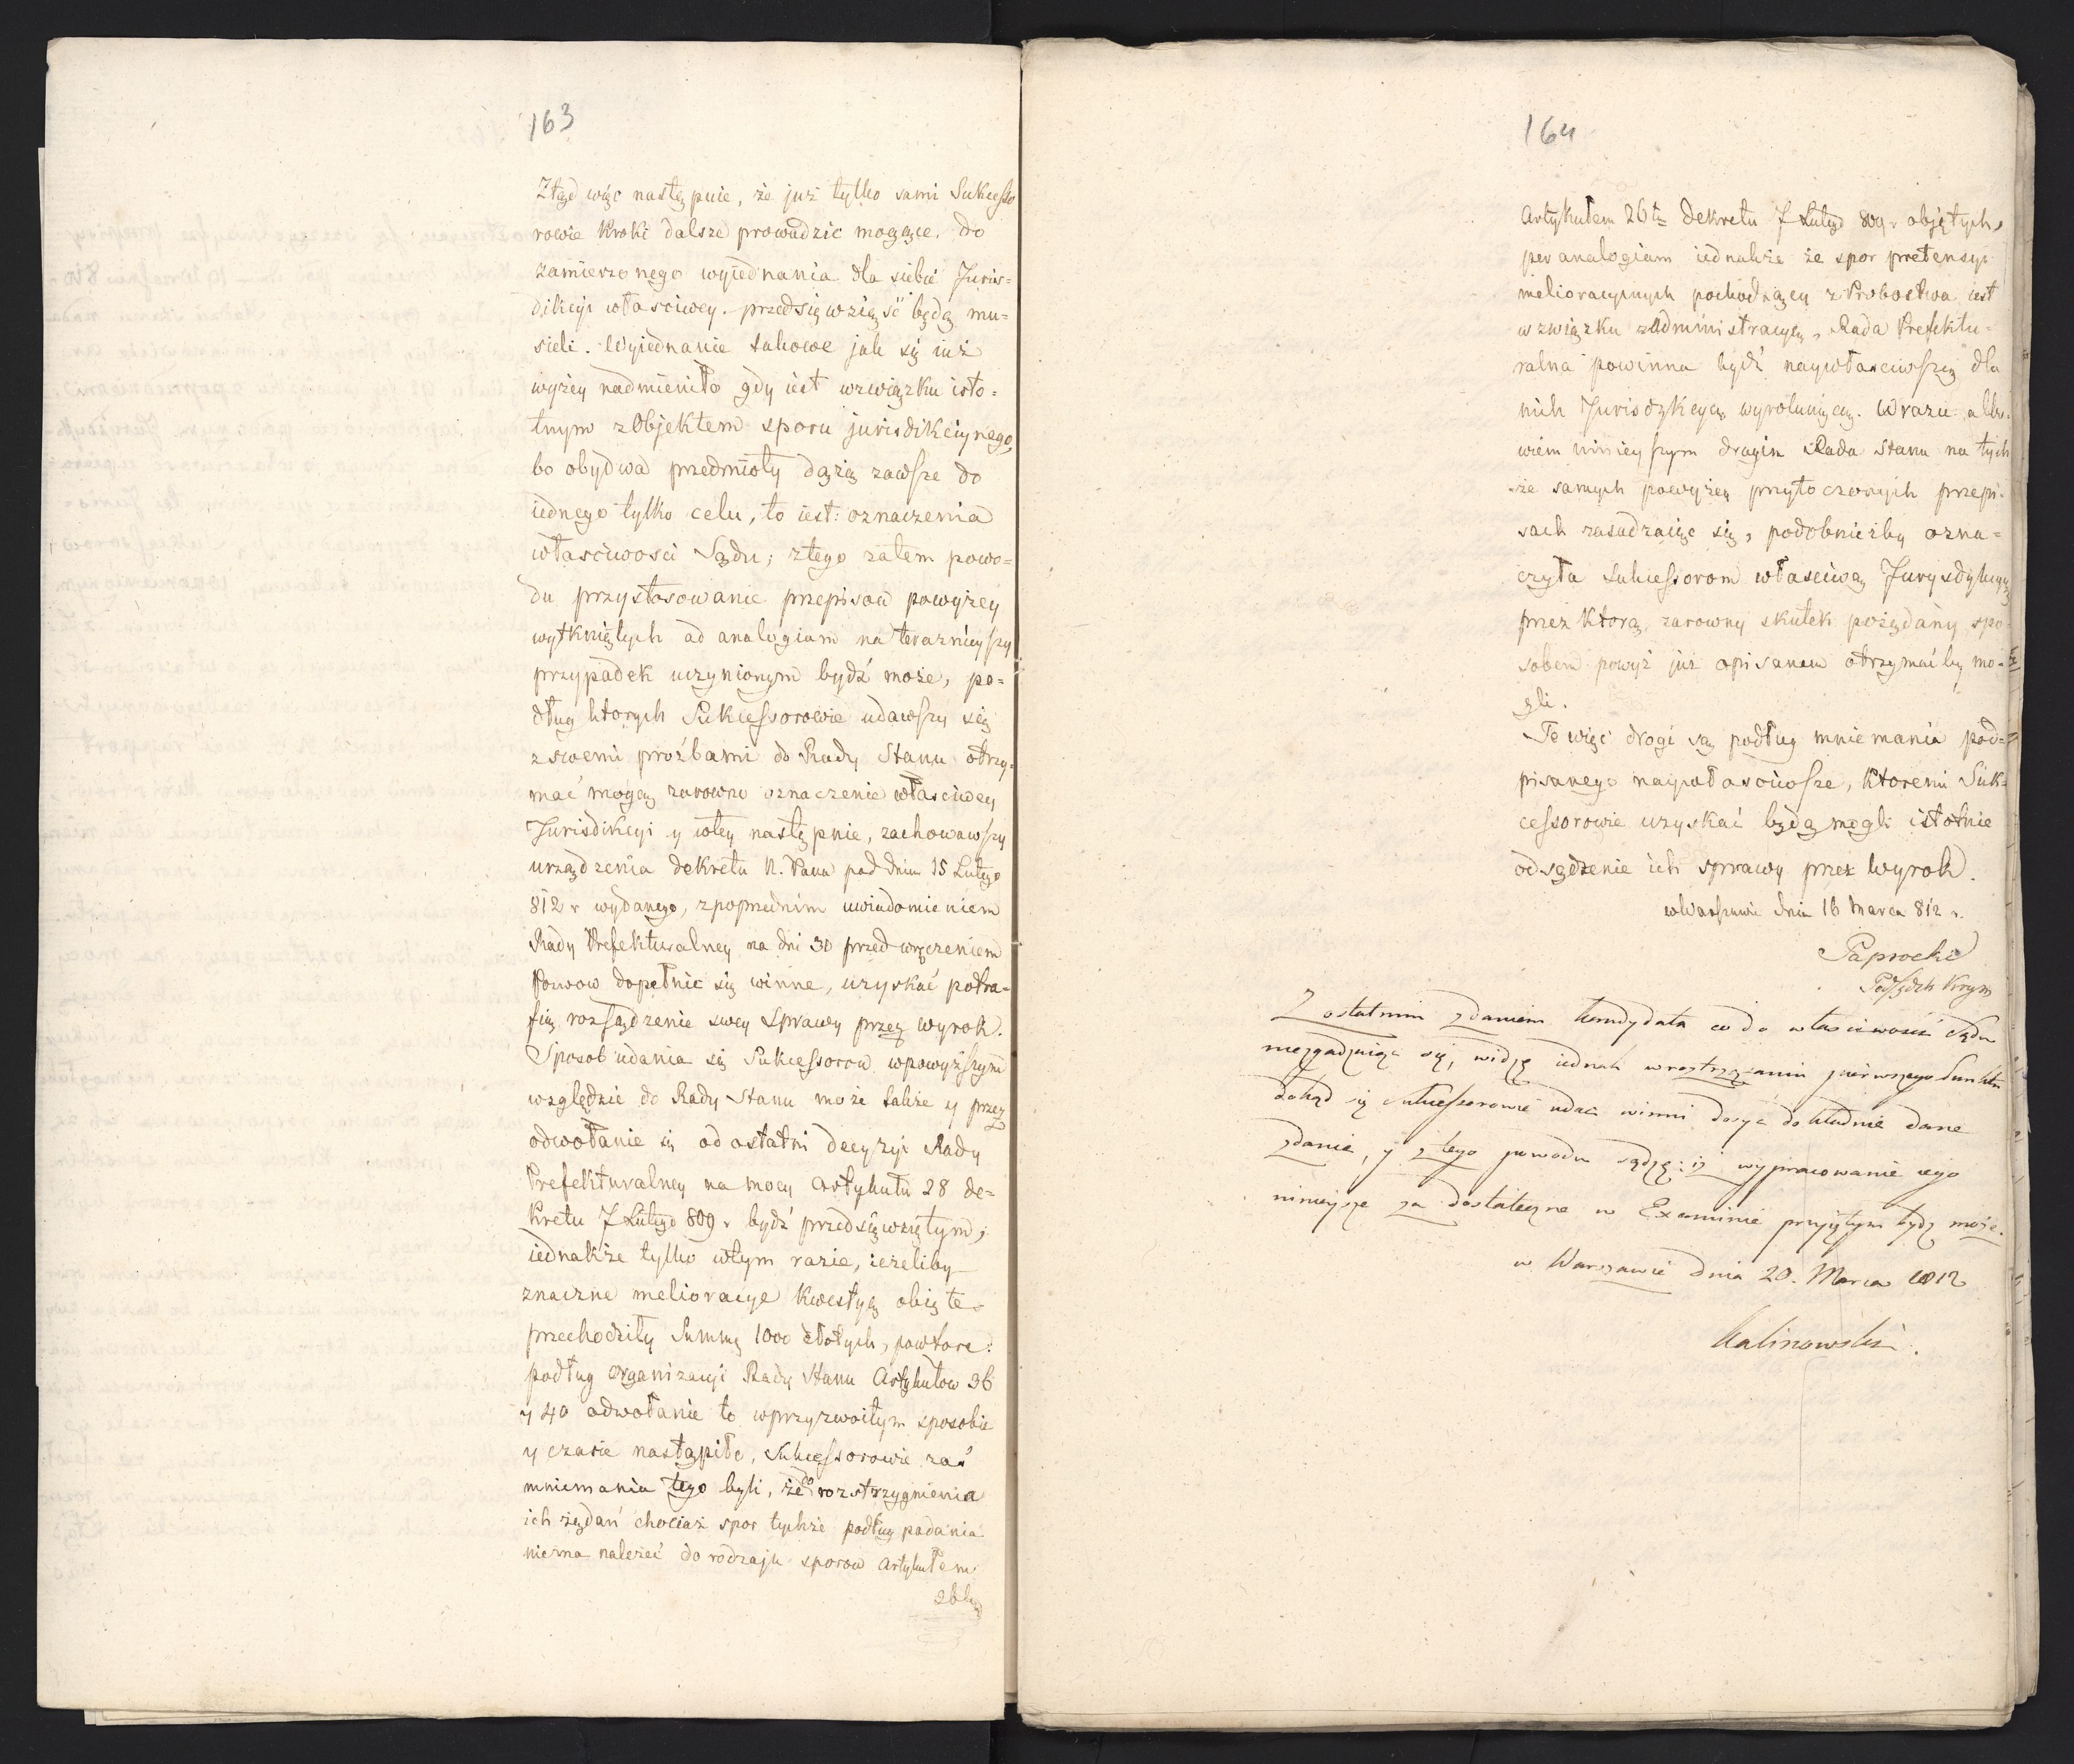 163
Ztąd więc następuie, że już tylko sami Sukcesso
rowie kroki dalsze prowadzic mogące. do
zamierzonego wyiednania dla siebie Juris=
dikcyi własciwey. przedsięwziąść będą mu=
sieli. Wyiednanie takowe jak się iuż
wyżey nadmieniło gdy iest wzwiązku isto=
tnym z Objektem sporu jurisdikciynego,
bo obydwa przedmioty dążią zawsze do
iednego tylko celu, to iest: oznaczenia
własciwosci Sądu; ztego zatem powo=
du przystosowanie przepisow powyżey
wytkniętych ad analogiam na teraznieyszy
przypadek uczynionym bydź może, po=
dług ktorych Sukcessorowie udawszy się
z swemi proźbami do Rady Stanu otrzy=
mać mogą zarowno oznaczenie własciwey
Jurisdikcyi y wtey następnie, zachowawszy
urządzenia dekretu N. Pana pod dniem 15 Lutego
812 r wydanego, zpoprzednim uwiadomieniem
Rady Prefekturalney na dni 30 przed wręczeniem
Pozwow dopełnic się winne, uzyskać potra=
fią rozsądzenie swey Sprawy przez wyrok.
Sposob udania się Sukcessorow wpowyższym
względzie do Rady Stanu może także y przez
odwołanie się od ostatni decyzyi Rady
Prefekturalney na mocy Artykułu 28 de=
kretu 7 Lutego 809 r bydź przedsięwziętym,
iednakże tylko wtym razie, ieżeliby
znaczne melioracye kwestyą obięte
przechodziły Summę 1000 złotych, powtore:
podług Organizacyi Rady Stanu Artykułow 36
y 40 odwołanie to wprzyzwoitym sposobie
y czasie nastąpiło, Sukcessorowie zaś
mniemania tego byli, że do rozstrzygnienia
ich żądań chociaż spor tychże podług padania
niema należeć do rodzaju sporow Artykułem
26tym
164
Artykułem 26tm dekretu 7 Lutego 809 r objętych,
per analogiam iednakże że spor pretensyi
melioracyinych pochodzący z Probostwa iest
w związku z Administracyą, Rada Prefektu=
ralna powinna bydź naywłasciwszą dla
nich Jurisdykcyą wyrokuiącą. W razie albo=
wiem ninieyszym drugim Rada Stanu na tych
że samych powyżey przytoczonych przepi=
sach zasadzaiąc się, podobnieżby ozna=
czyła Sukcessorom własciwą Jurysdykcyą
przez ktorą, zarowny skutek pożądany spo=
sobem powyż już opisanem otrzymaćby mo=
gli.
Te więc drogi są podług mniemania pod=
pisanego naywłasciwsze, ktoremi Suk=
cessorowie uzyskać będą mogli istotnie
odsądzenie ich sprawy przez wyrok.
w Warszawie dnia 16 Marca 812 r.
Paprocki
Podsędek Krym
Z ostatnim zdaniem kandydata co do własciwości Sądu
niezgadzaiąc się, widzę iednak w rostrząsaniu pierwszego Punktu
dokąd się Sukcessorowie udać winni dosyć dokładnie dane
zdanie, y z tego powodu sądzę: iż wypracowanie iego
ninieysze za dostateczne w Examinie przyiętym bydź może.
w Warszawie dnia 20. Marca 1812
Kalinowski.